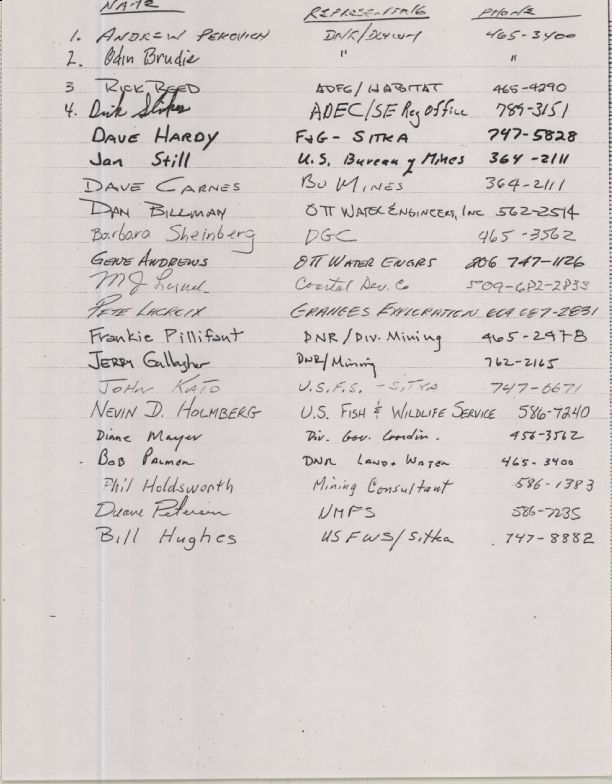 NAME REPRESENTING PHONE
1. ANDREW PEKOVICH DNR/DLWM 465-3400
2. Odin Brudie " "
3 RICK REED ADFG/HABITAT 465-4290
4. Dick ADEC/SE Reg Office 789-3151
DAVE HARDY F&G - SITKA 747-5828
Jan Still U.S. Bureau of Mines 364-2111
DAVE CARNES BU MINES 364-2111
DAN BILLMAN OTT WATER ENGINEERS, INC 562-2514
Barbara Sheinberg DGC 465-3562
GENE ANDREWS OTT WATER ENGRS 206 747-1126
MJ Coastal Dev. Co 509-682-2833
PETE LACROIX GRANGES EXPLORATION 604 687-2831
Frankie Pillifant DNR/Div. Mining 465-2478
JERRY Gallagher DNR/Mining 762-2165
JOHN KATO U.S.F.S. - SITKA 747-6671
NEVIN D. HOLMBERG U.S. FISH & WILDLIFE SERVICE 586-7240
Diane Mayer Div. Gov. Coordin. 456-3562
Bob Palmer DNR Land & Water 465-3400
Phil Holdsworth Mining Consultant 586-1383
Duane Petersen NMFS 586-7235
Bill Hughes US FWS/Sitka 747-8882